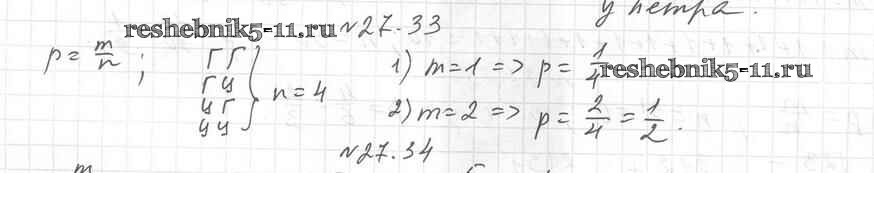 у Петра.
reshebnik5-11.ru
№27.33
p = m/n ;
ГГ
ГЦ
ЦГ
ЦЦ
n = 4
1) m = 1 => p = 1/4
reshebnik5-11.ru
2) m = 2 => p = 2/4 = 1/2.
№27.34